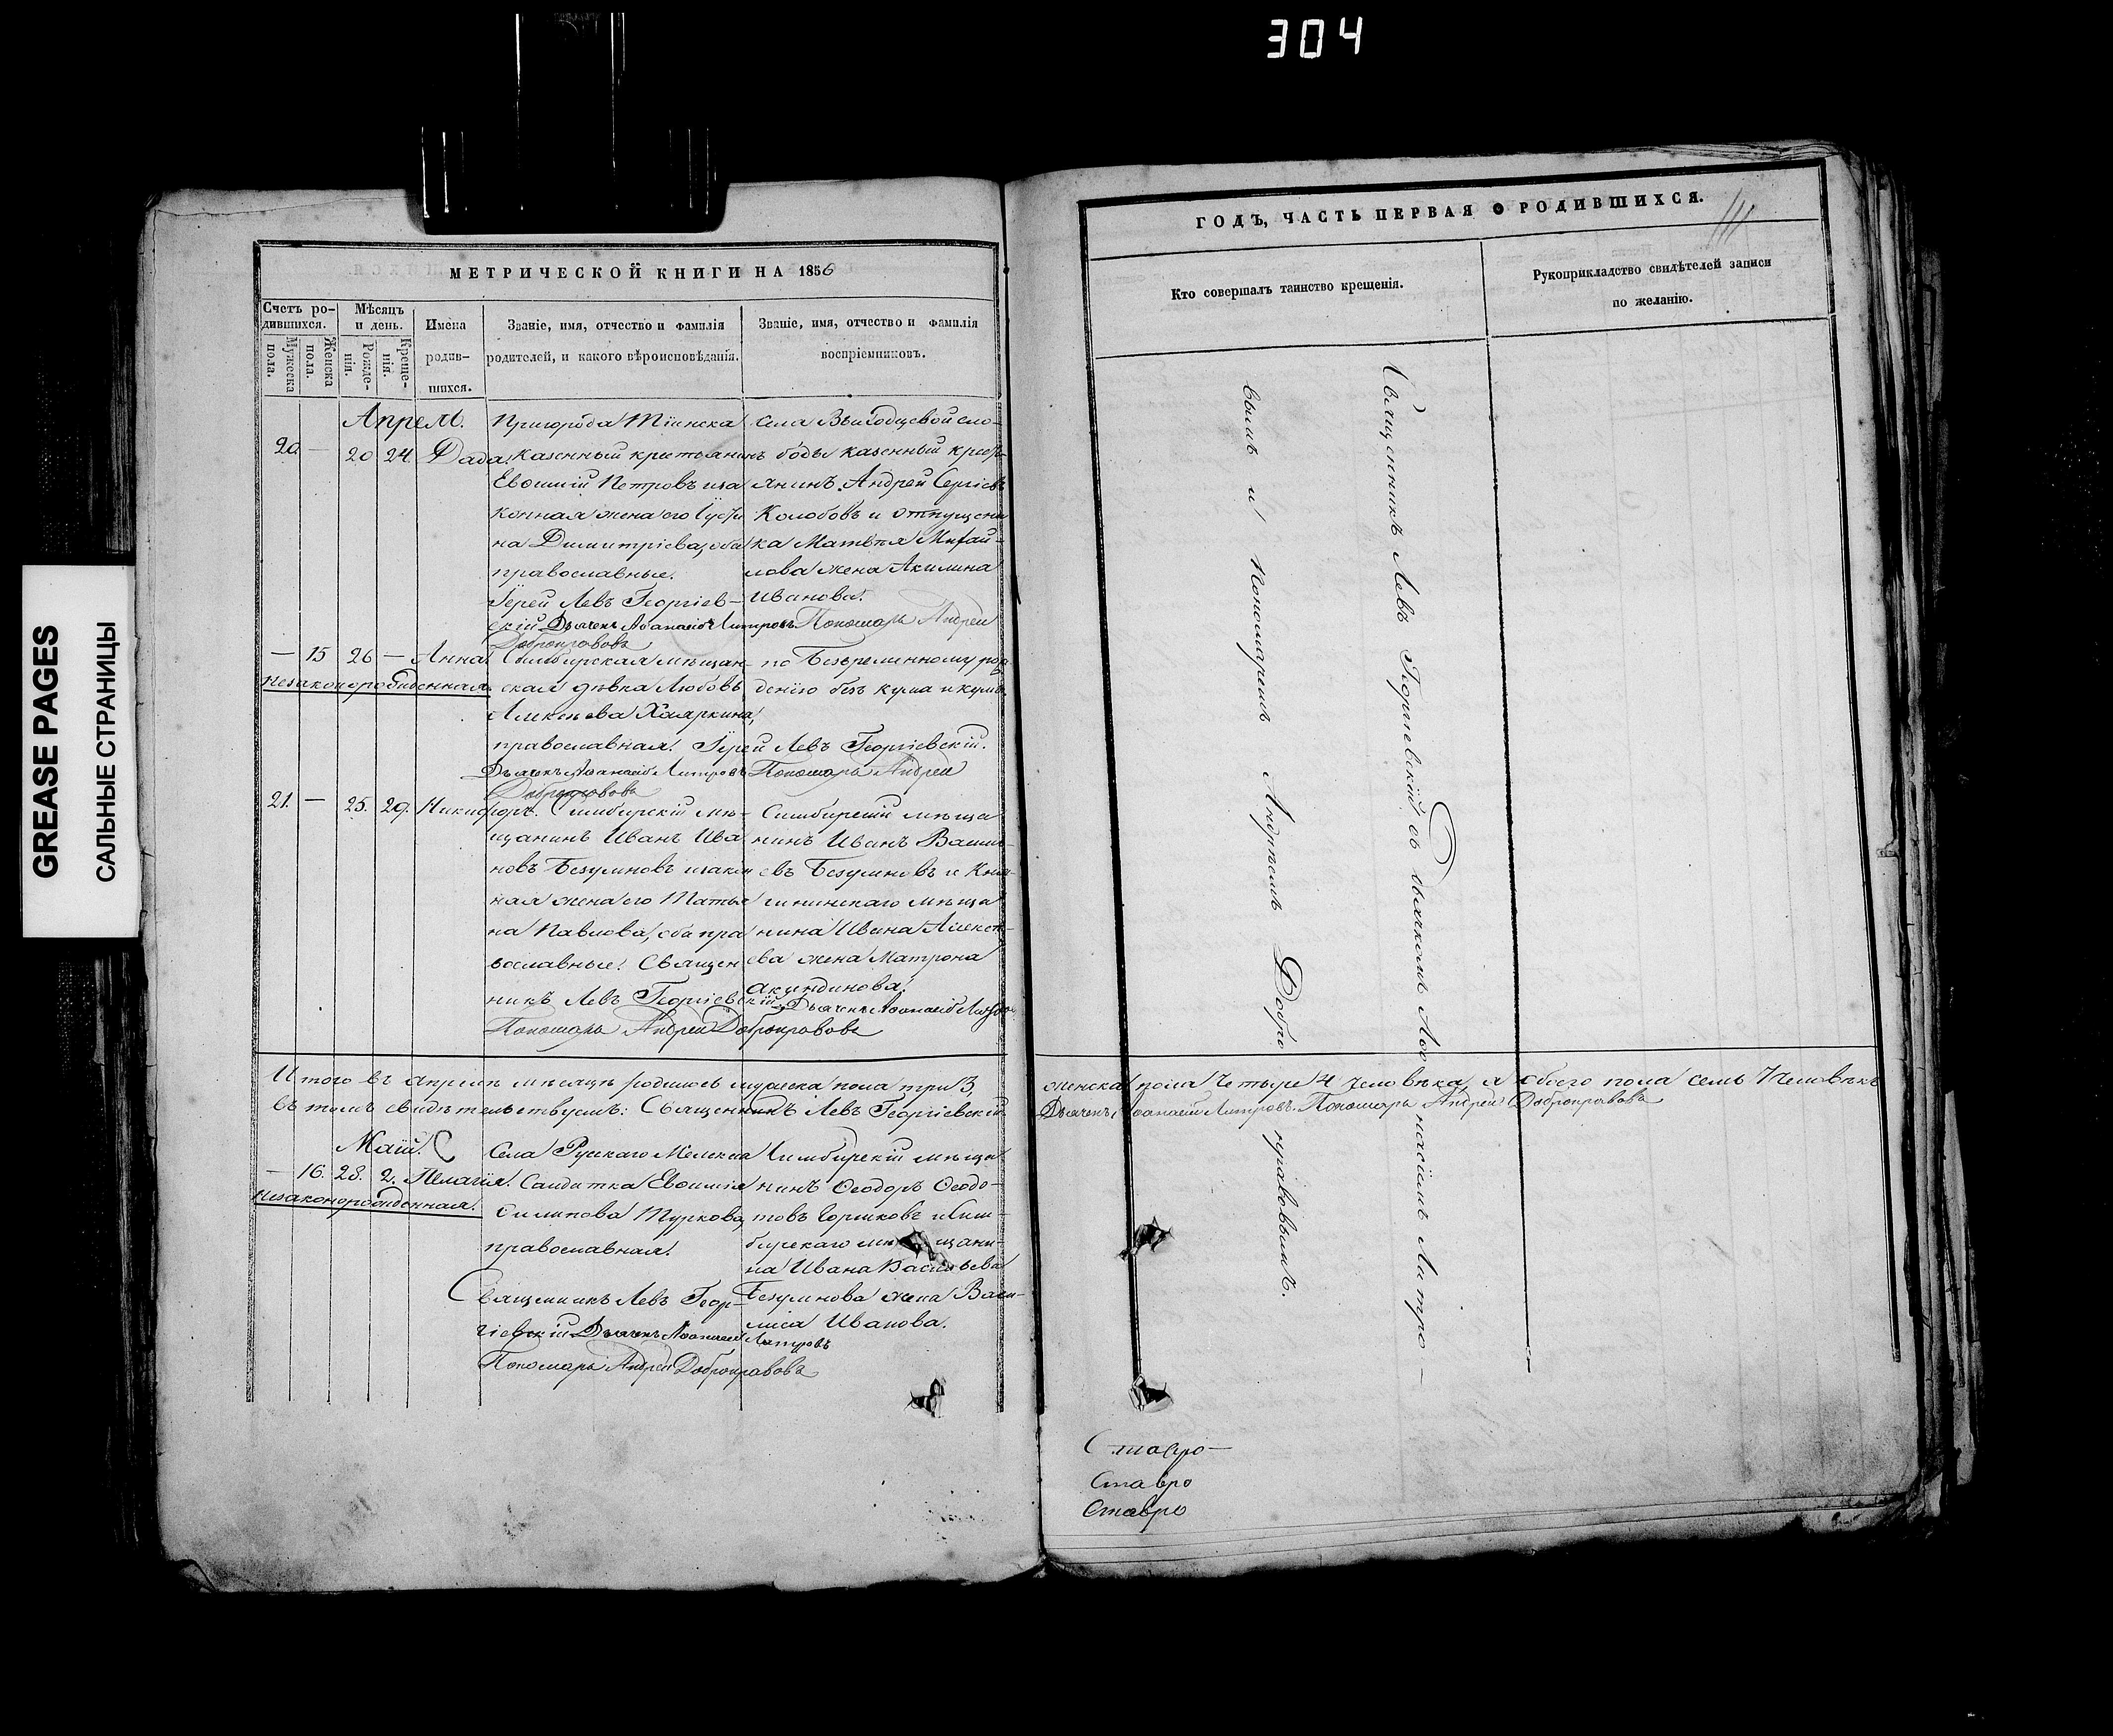 304
GREASE PAGES
САЛЬНЫЕ СТРАНИЦЫ
МЕТРИЧЕСКОЙ КНИГИ НА 1856
Счетъ ро-
дившихся.
Мужеска
пола.
Женска
пола.
Мѣсяцъ
и день.
Рожде-
нія.
Креще-
нія.
Имена
родив-
шихся.
Званіе, имя, отчество и фамилія
родителей, и какого вѣроисповѣданія.
Званіе, имя, отчество и фамилія
воспріемниковъ.
Апрель.
20 — 20 24 Дада.
Пригорода Тіинска
казенный крестьянинъ
Евѳимій Петровъ и за
конная жена его Іусти
на Димитріева, оба
православные.
Іерей Левъ Георгіев-
скій Дьячекъ Аѳанасій Литровъ Пономарь Андрей
Доброправовъ
села
слободы казенный кресть
янинъ Андрей Сергіевъ
Колобовъ и отпущени
ка Матвѣя Михай-
лова жена Акилина
Иванова.
— 15 26 — Анна
незаконорожденная
Симбирская мѣщан-
ская дѣвка Любовь
Алексѣева Хаяркина,
православная. Іерей Левъ Георгіевскій.
Дьячекъ Аѳанасій Литровъ Пономарь Андрей
Доброправовъ
рож
денію безъ кума и кумы
21. — 25. 29. Никифоръ.
Симбирскій мѣ-
щанинъ Иванъ Ива
новъ Безумновъ и закон
ная жена его Татья
на Павлова, оба пра
вославные. Священ
никъ Левъ Георгіевскій Дьячекъ Аѳанасій Литровъ
Пономарь Андрей Доброправовъ
Симбирскій мѣща
нинъ Иванъ Василь-
евъ Безумновъ и Кня-
гининскаго мѣща
нина Ивана Алексѣ-
ева жена Матрона
Акиндинова.
Итого въ апрелѣ мѣсяцѣ родилось мужеска пола три 3,
въ томъ свидѣтельствуемъ: Священникъ Левъ Георгіевскій
Май.
— 16. 28. 2. Пелагія.
незаконорожденная.
Села Русскаго Мелекеса
Солдатка Евѳимія
Силипова Туркова,
православная.
Священникъ Левъ Геор-
гіевскій Дьячекъ Аѳанасій Литровъ
Пономарь Андрей Доброправовъ
Симбирскій мѣща
нинъ Ѳеодоръ Ѳеодо-
товъ Горшковъ и Сим-
бирскаго мѣщани-
на Ивана Васильева
Безумнова жена Васи-
лиса Иванова.
ГОДЪ, ЧАСТЬ ПЕРВАЯ О РОДИВШИХСЯ.
Кто совершалъ таинство крещенія.
Рукоприкладство свидѣтелей записи
по желанію.
Священникъ Левъ Георгіевскій съ Дьячкомъ Аѳонасіемъ Литро-
вымъ и Пономаремъ Андреемъ Доброправовымъ.
женска пола четыре 4 человѣка, а обоего пола семь 7 человѣкъ
Дьячекъ Аѳанасій Литровъ. Пономарь Андрей Доброправовъ
Ставро-
Ставро
Ставро